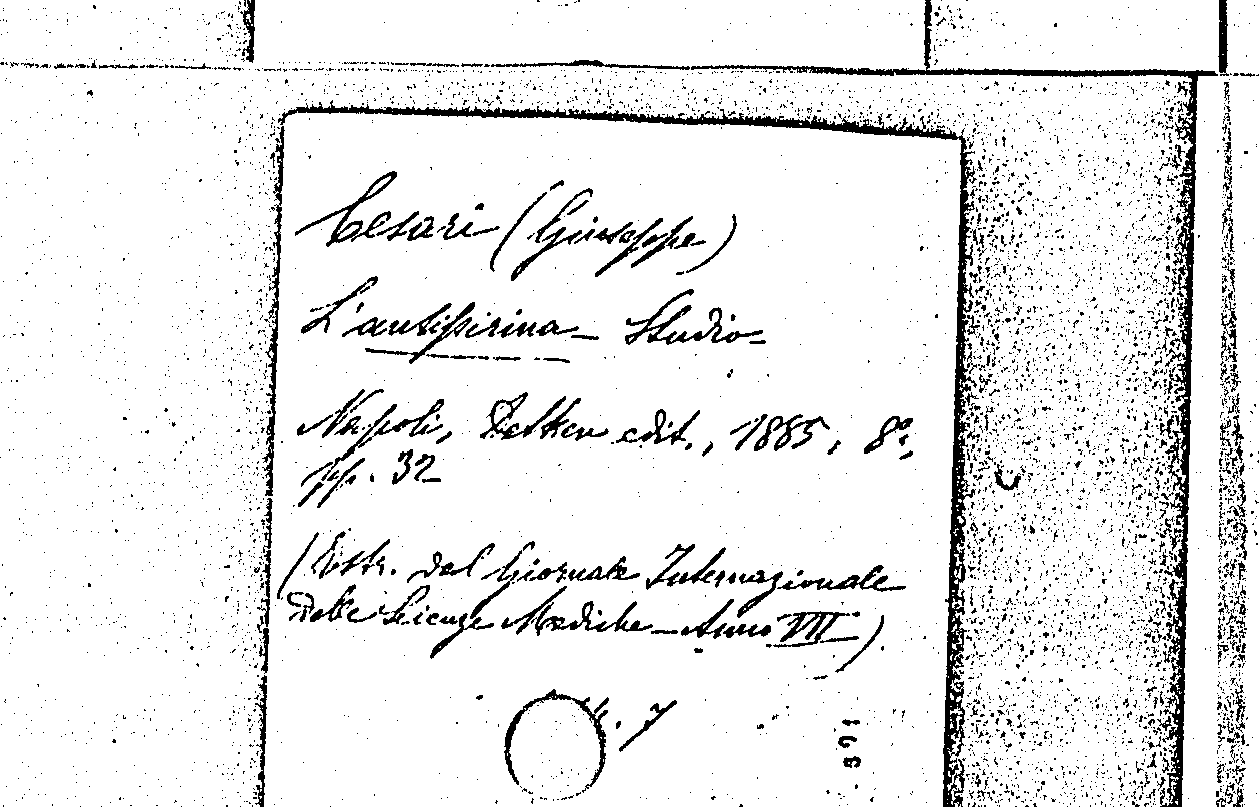 Cesari (Giuseppe)
L'antipirina - Studio -
Napoli, Detken edit., 1885, 8º,
pp. 32
(Estr. dal Giornale Internazionale
delle Scienze Mediche - Anno VII)
7